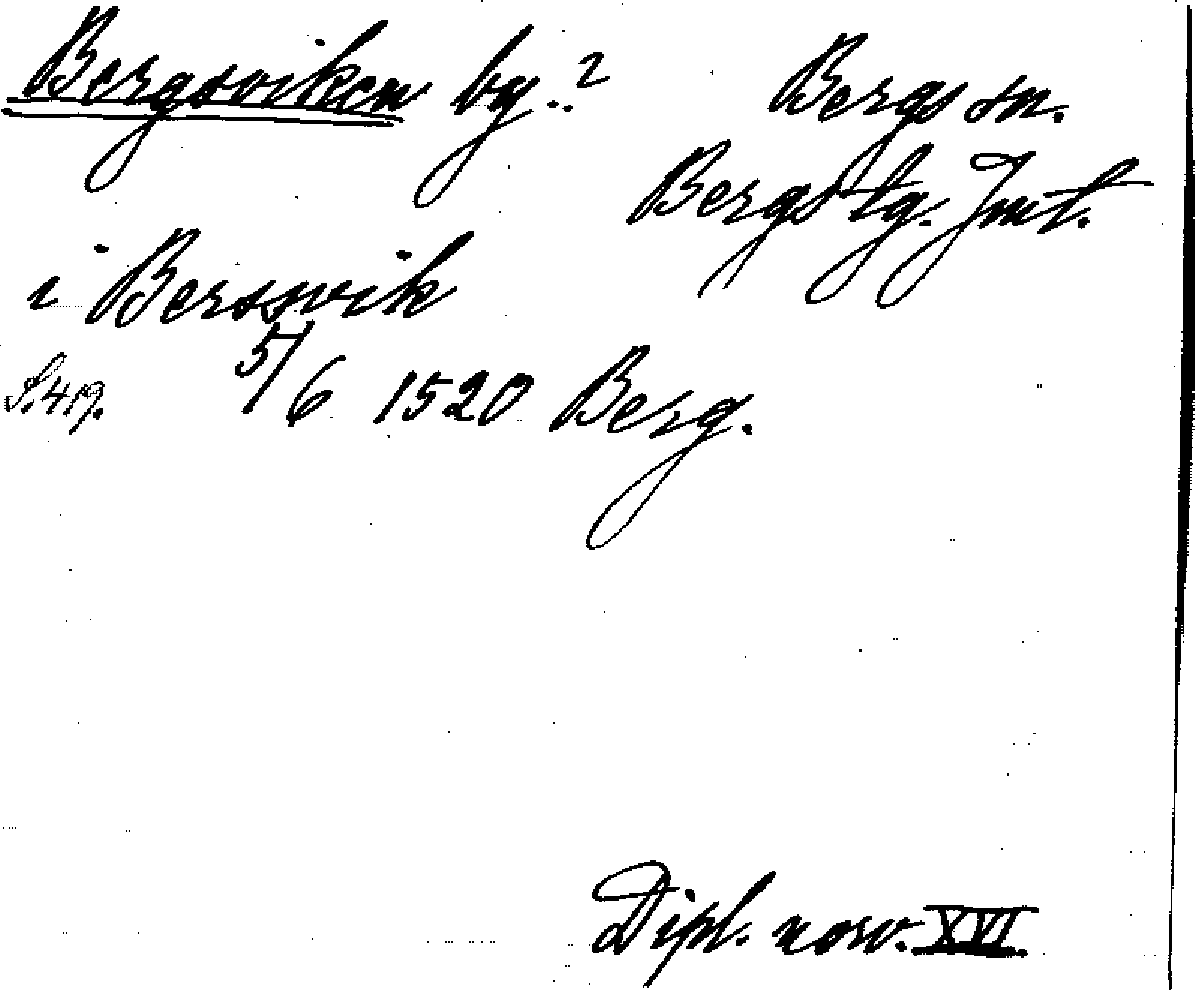 Bergsviken by.?
Bergs sn.
Bergs tg. Jmt.
i Bersswik
S. 419. 5/6 1520 Berg.
Dipl. norv. XVI.